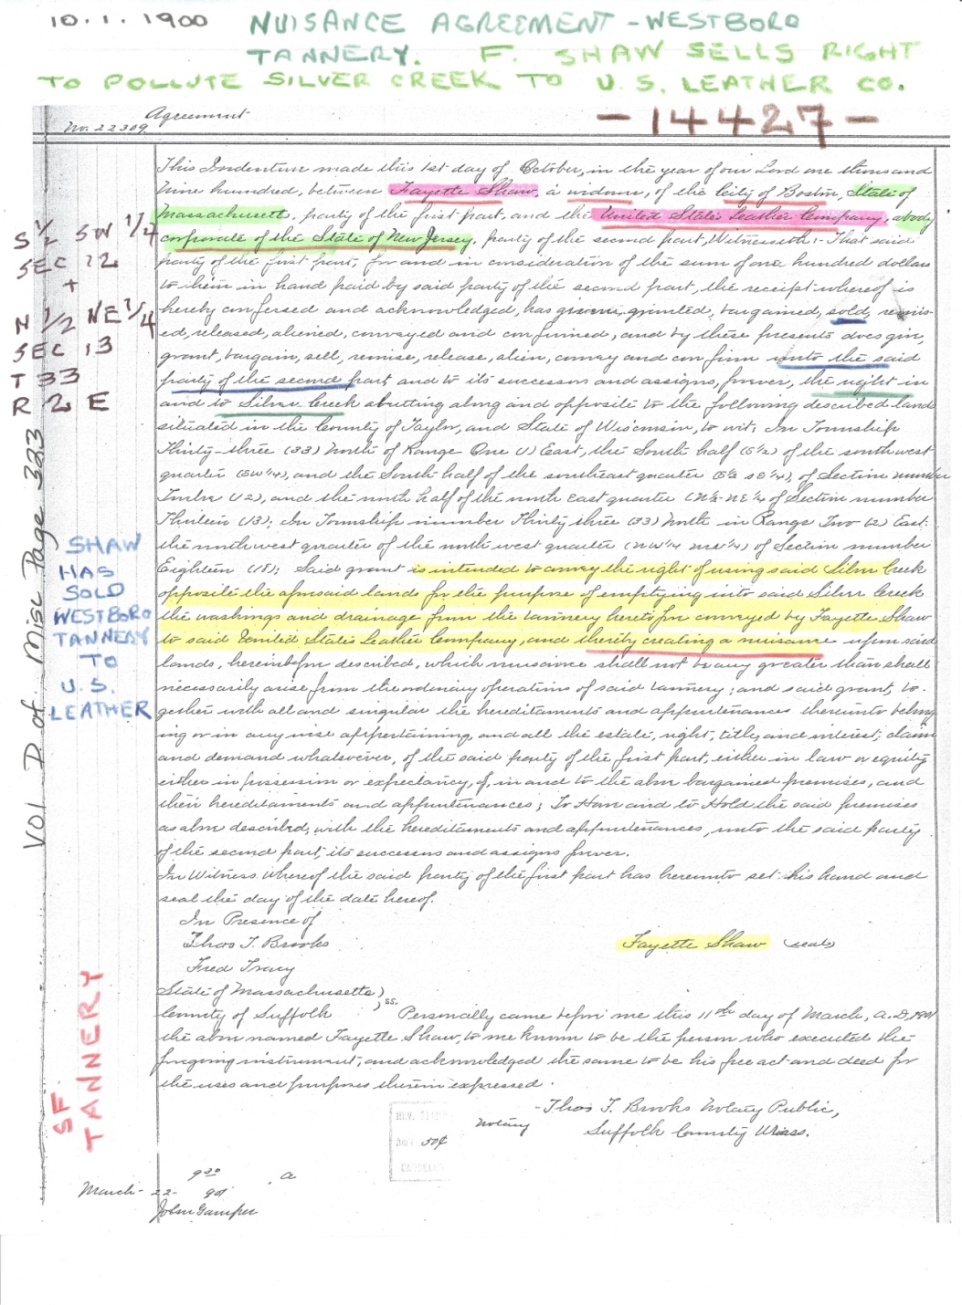 10.1.1900 NUISANCE AGREEMENT - WESTBORO
TANNERY. F. SHAW SELLS RIGHT
TO POLLUTE SILVER CREEK TO U.S. LEATHER CO.
Agreement
No. 22309
-14427-
This Indenture made this 1st day of October, in the year of our Lord one thousand
nine hundred, between Fayette Shaw, a widower, of the City of Boston, State of
Massachusetts, party of the first part, and the United States Leather Company, a body
corporate of the State of New Jersey, party of the second part, Witnesseth:- That said
party of the first part, for and in consideration of the sum of one hundred dollars
to him in hand paid by said party of the second part, the receipt whereof is
hereby confessed and acknowledged, has given, granted, bargained, sold, remis-
ed, released, aliened, conveyed and confirmed, and by these presents does give,
grant, bargain, sell, remise, release, alien, convey and confirm unto the said
party of the second part and to its successors and assigns, forever, the right in
and to Silver Creek abutting along and opposite to the following described lands
situated in the County of Taylor, and State of Wisconsin, to wit: In Township
Thirty-three (33) North of Range One (1) East, the South half (S½) of the southwest
quarter (SW¼), and the South half of the southeast quarter (S½ SE¼), of Section number
Twelve (12), and the north half of the north East quarter (N½ NE¼ of Section number
Thirteen (13); In Township number Thirty three (33) North in Range Two (2) East:
the northwest quarter of the north west quarter (NW¼ NW¼) of Section number
Eighteen (18); Said grant is intended to convey the right of using said Silver Creek
opposite the aforesaid lands for the purpose of emptying into said Silver Creek
the washings and drainage from the tannery heretofore conveyed by Fayette Shaw
to said United States Leather Company, and thereby creating a nuisance upon said
lands, hereinbefore described, which nuisance shall not be any greater than shall
necessarily arise from the ordinary operations of said tannery; and said grant, to-
gether with all and singular the hereditaments and appurtenances thereunto belong
ing or in any wise appertaining, and all the estate, right, title, and interest, claim
and demand whatsoever, of the said party of the first part, either in law or equity
either in possession or expectancy, of, in and to the above bargained premises, and
their hereditaments and appurtenances; To Have and to Hold the said premises
as above described, with the hereditaments and appurtenances, unto the said party
of the second part, its successors and assigns forever.
In Witness Whereof the said party of the first part has hereunto set his hand and
seal the day of the date hereof.
In Presence of
Thos T. Brooks
Fayette Shaw (seal)
Fred Tracy
State of Massachusetts)
County of Suffolk ) ss. Personally came before me this 11th day of March, A.D. 1901
the above named Fayette Shaw, to me known to be the person who executed the
foregoing instrument, and acknowledged the same to be his free act and deed for
the uses and purposes therein expressed.
-Thos T. Brooks Notary Public,
Notary
Suffolk County Mass.
50¢
9 30 a
March - 22 - 901
John Gamper
S 1/2 SW 1/4
SEC 12
+
N 1/2 NE 1/4
SEC 13
T 33
R 2 E
Vol D of Misc Page 383
SHAW
HAS
SOLD
WESTBORO
TANNERY
TO
U.S.
LEATHER
SF
TANNERY